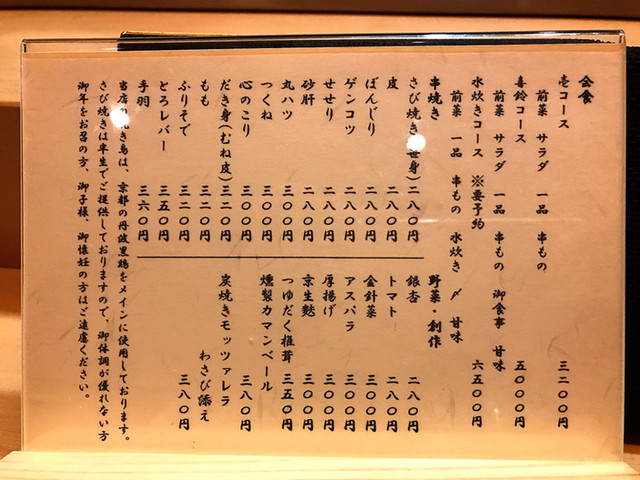 会食
壱コース 三二〇〇円
前菜 サラダ 一品 串もの
喜鈴コース 五〇〇〇円
前菜 サラダ 一品 串もの 御食事 甘味
水炊きコース ※要予約 六五〇〇円
前菜 一品 串もの 水炊き 〆 甘味
串焼き
さび焼き(笹身) 二八〇円
皮 二八〇円
ぼんじり 二八〇円
ゲンコツ 二八〇円
せせり 二八〇円
砂肝 二八〇円
丸ハツ 三〇〇円
つくね 三〇〇円
心のこり 三〇〇円
だき身(むね皮) 三二〇円
もも 三二〇円
ふりそで 三二〇円
とろレバー 三五〇円
手羽 三六〇円
野菜・創作
銀杏 二八〇円
トマト 二八〇円
金針菜 三〇〇円
アスパラ 三〇〇円
厚揚げ 三〇〇円
京生麩 三〇〇円
つゆだく椎茸 三五〇円
燻製カマンベール 三八〇円
炭焼きモッツァレラ
わさび添え 三八〇円
当店の焼き鳥は、京都の丹波黒鶏をメインに使用しております。
さび焼きは半生でご提供しておりますので、御体調が優れない方
御年をお召の方、御子様、御懐妊の方はご遠慮ください。